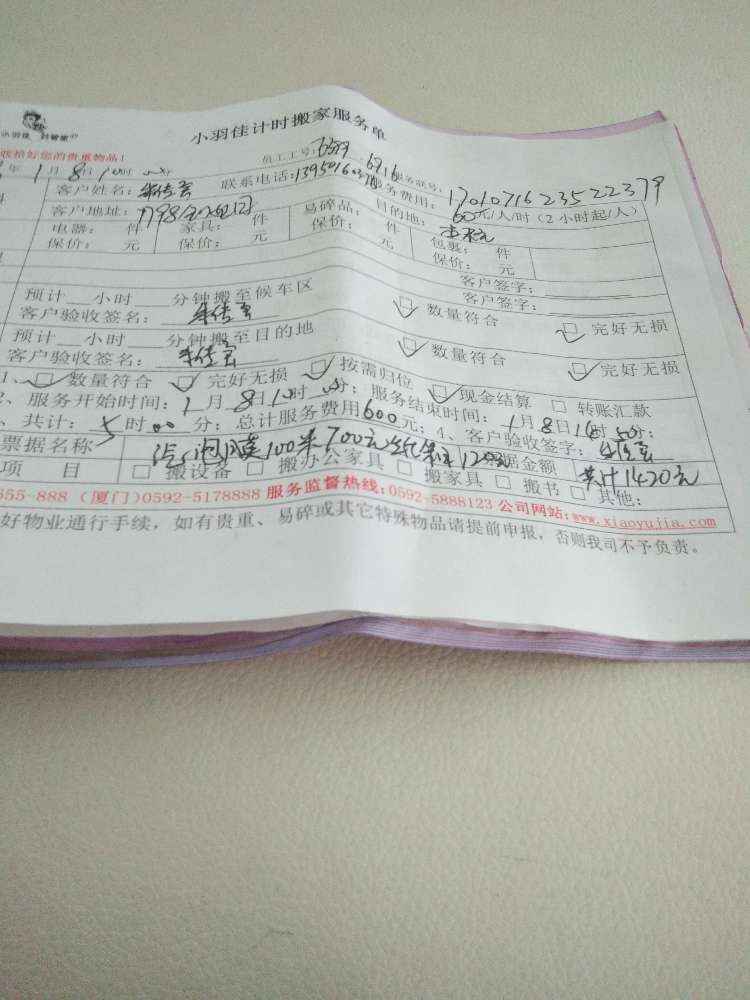 小羽佳计时搬家服务单
小羽佳
收拾好您的贵重物品！ 员工工号：6589、6916 服务账号：17010716235522379
年1月8日10时00分
客户姓名： 联系电话： 服务费用：60元/人/时（2小时起/人）
客户地址： 目的地：
电器： 件 家具： 件 易碎品： 件 包裹： 件
保价： 元 保价： 元 保价： 元 保价： 元
客户签字：
预计__小时____分钟搬至候车区 客户签字：
客户验收签名： ☑ 数量符合 □ 完好无损
预计__小时____分钟搬至目的地
客户验收签名： ☑ 数量符合 ☑ 完好无损
1、☑ 数量符合 ☑ 完好无损 ☑ 按需归位 ☑ 现金结算 □ 转账汇款
2、服务开始时间：1月8日10时00分；服务结束时间：1月8日 时50分；
、共计：5时00分；总计服务费用600元；4、客户验收签字：
票据名称 泡膜100米700元纸 120 票据金额 共计1420元
项 目 □ 搬设备 □ 搬办公家具 □ 搬家具 □ 搬书 □ 其他：
555-888（厦门）0592-5178888 服务监督热线：0592-5888123 公司网站：www.xiaoyujia.com
好物业通行手续，如有贵重、易碎或其它特殊物品请提前申报，否则我司不予负责。